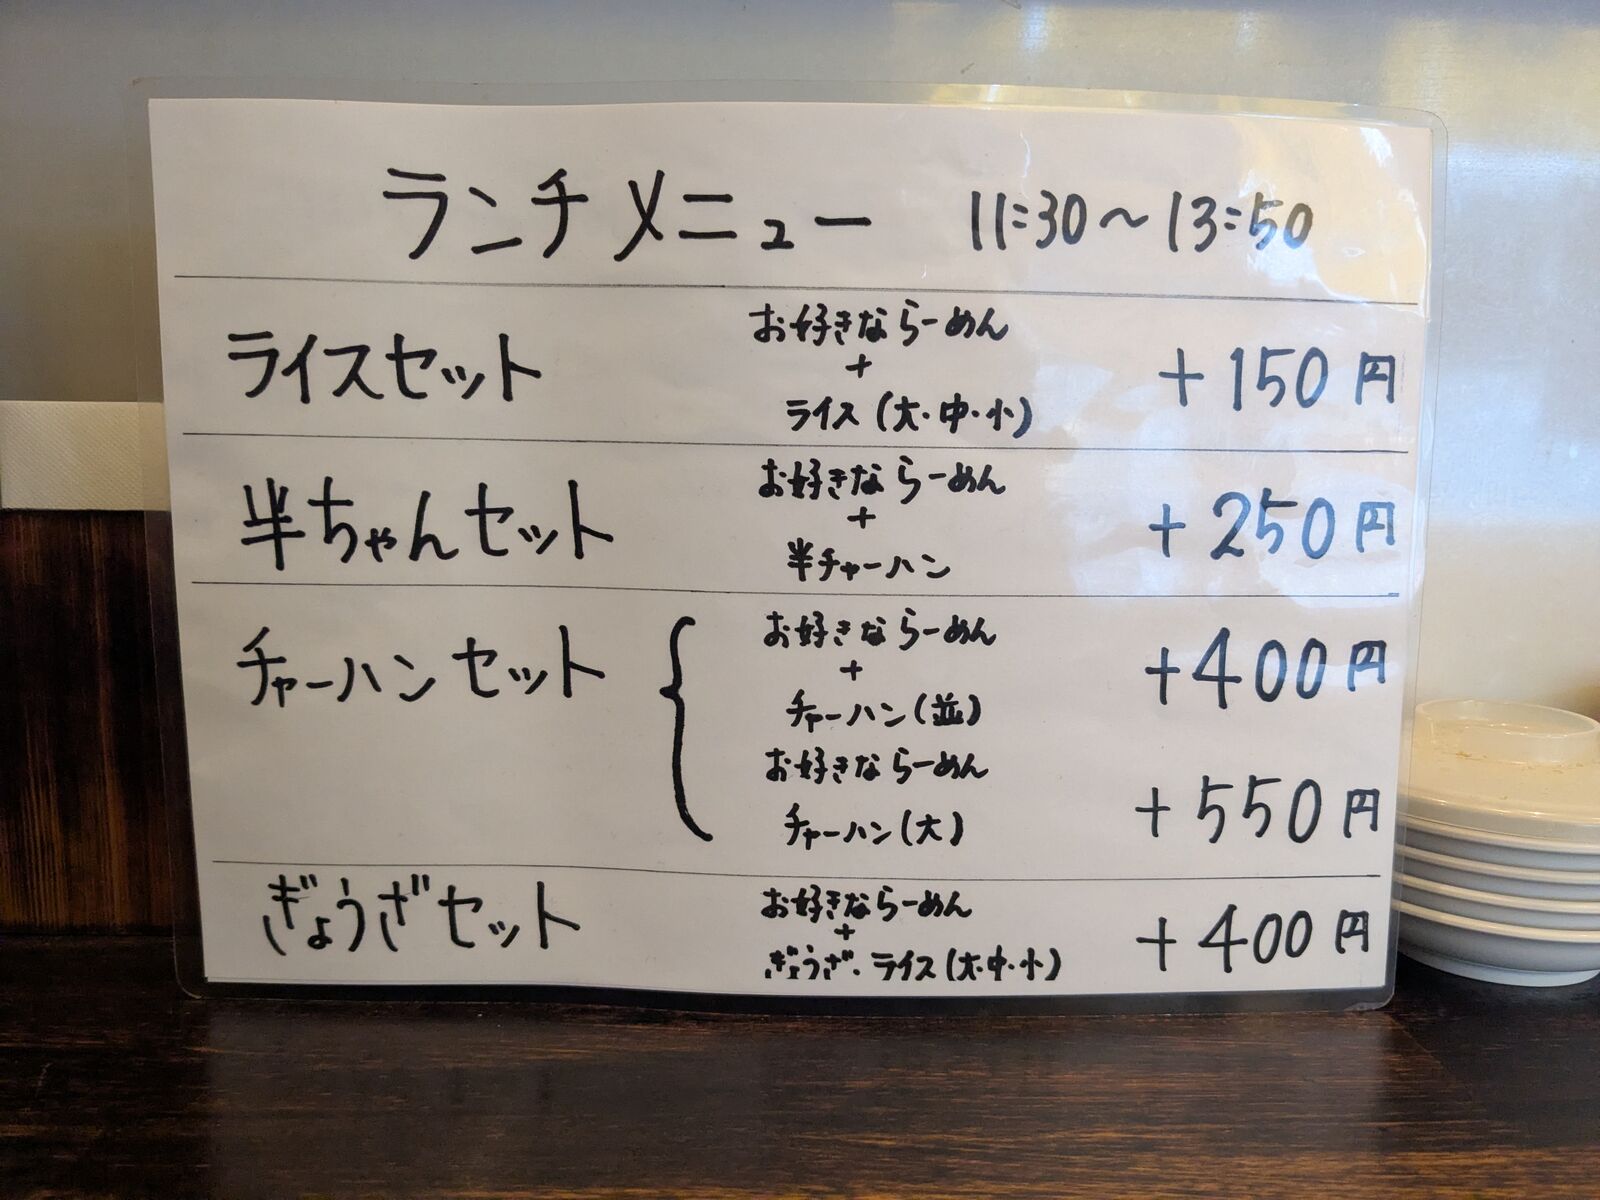 ランチメニュー 11:30〜13:50
お好きならーめん
ライスセット + +150円
ライス(大・中・小)
お好きならーめん
半ちゃんセット + +250円
半チャーハン
お好きならーめん
チャーハンセット { + +400円
チャーハン(並)
お好きならーめん
+550円
チャーハン(大)
お好きならーめん
ぎょうざセット + +400円
ぎょうざ・ライス(大・中・小)